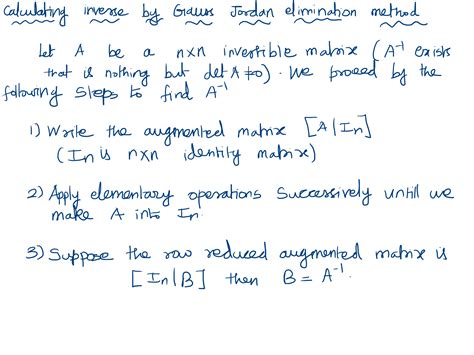 Calculating inverse by Gauss Jordan elimination method
Let A be a n×n invertible matrix (A⁻¹ exists
that is nothing but det A ≠0). We proceed by the
following steps to find A⁻¹
1) Write the augmented matrix [A|In]
(In is n×n identity matrix)
2) Apply elementary operations successively untill we
make A into In.
3) Suppose the row reduced augmented matrix is
[In|B] then B = A⁻¹.